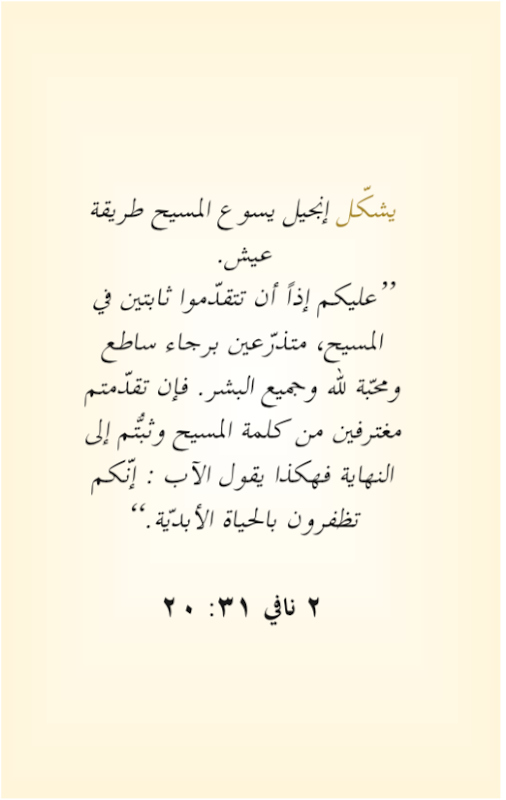 يشكّل إنجيل يسوع المسيح طريقة
عيش.
”عليكم إذاً أن تتقدّموا ثابتين في
المسيح، متذرّعين برجاء ساطع
ومحبّة لله وجميع البشر. فإن تقدّمتم
مغترفين من كلمة المسيح وثبتُّم إلى
النهاية فهكذا يقول الآب : إنّكم
تظفرون بالحياة الأبديّة.“
٢ نافي ٣١: ٢٠